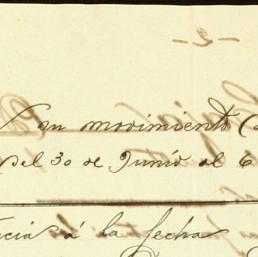 - 2 -
su movimiento
del 30 de Junio al 6
ncia á la fecha